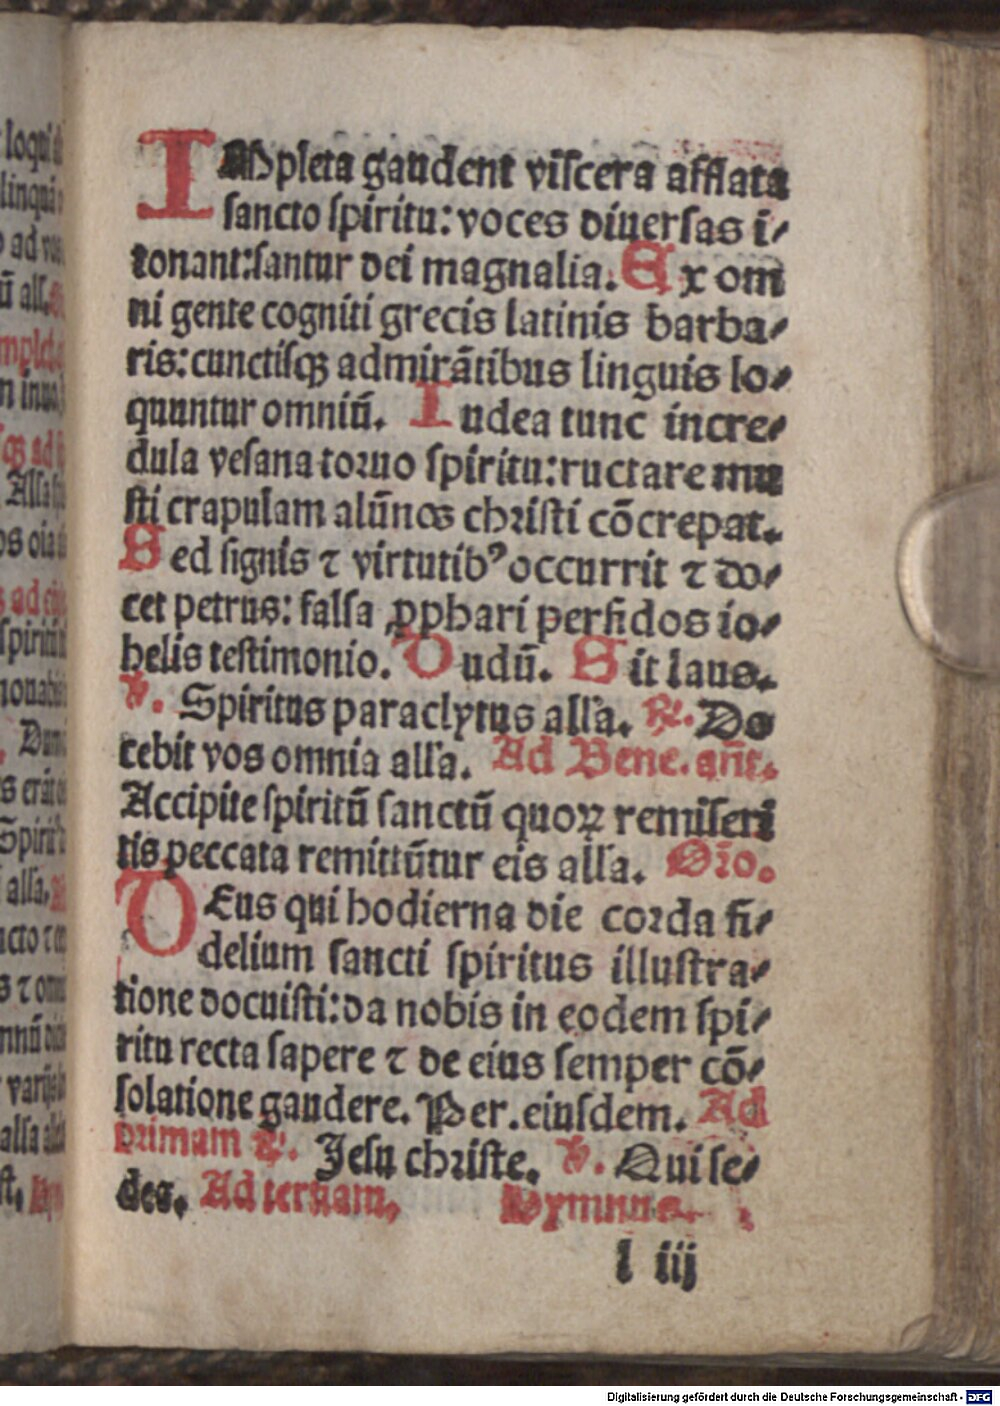 loqui
linqui
ad vos
ū all.
mplet
n inuo
sqꝫ ad
Alla
os oia
ad
spiritu
nonabis
. Dum
s erāt
Spirit
alla.
ncto ⁊
s ⁊ omni
nnū
varijs
alla
st. Hy
IMpleta gaudent viscera afflata
sancto spiritu: voces diuersas i⸗
tonant:fantur dei magnalia. Ex om
ni gente cogniti grecis latinis barba⸗
ris: cunctisqꝫ admirātibus linguis lo⸗
quuntur omniū. Iudea tunc incre⸗
dula vesana toruo spiritu: ructare mu
sti crapulam alūnos christi cōcrepat.
Sed signis ⁊ virtutibꝰ occurrit ⁊ do⸗
cet petrus: falsa ꝓphari perfidos io⸗
helis testimonio. Dudū. Sit laus.
℣. Spiritus paraclytus alla. ℟. Do
cebit vos omnia alla. Ad Bene. añt.
Accipite spiritū sanctū quoꝝ remiseri
tis peccata remittūtur eis alla. Oro.
DEus qui hodierna die corda fi⸗
delium sancti spiritus illustra⸗
tione docuisti: da nobis in eodem spi⸗
ritu recta sapere ⁊ de eius semper cō⸗
solatione gaudere. Per. eiusdem. Ad
primam ℟. Jesu christe. ℣. Qui se⸗
des. Ad tertiam. Hymnus.
l iij
Digitalisierung gefördert durch die Deutsche Forschungsgemeinschaft - DFG